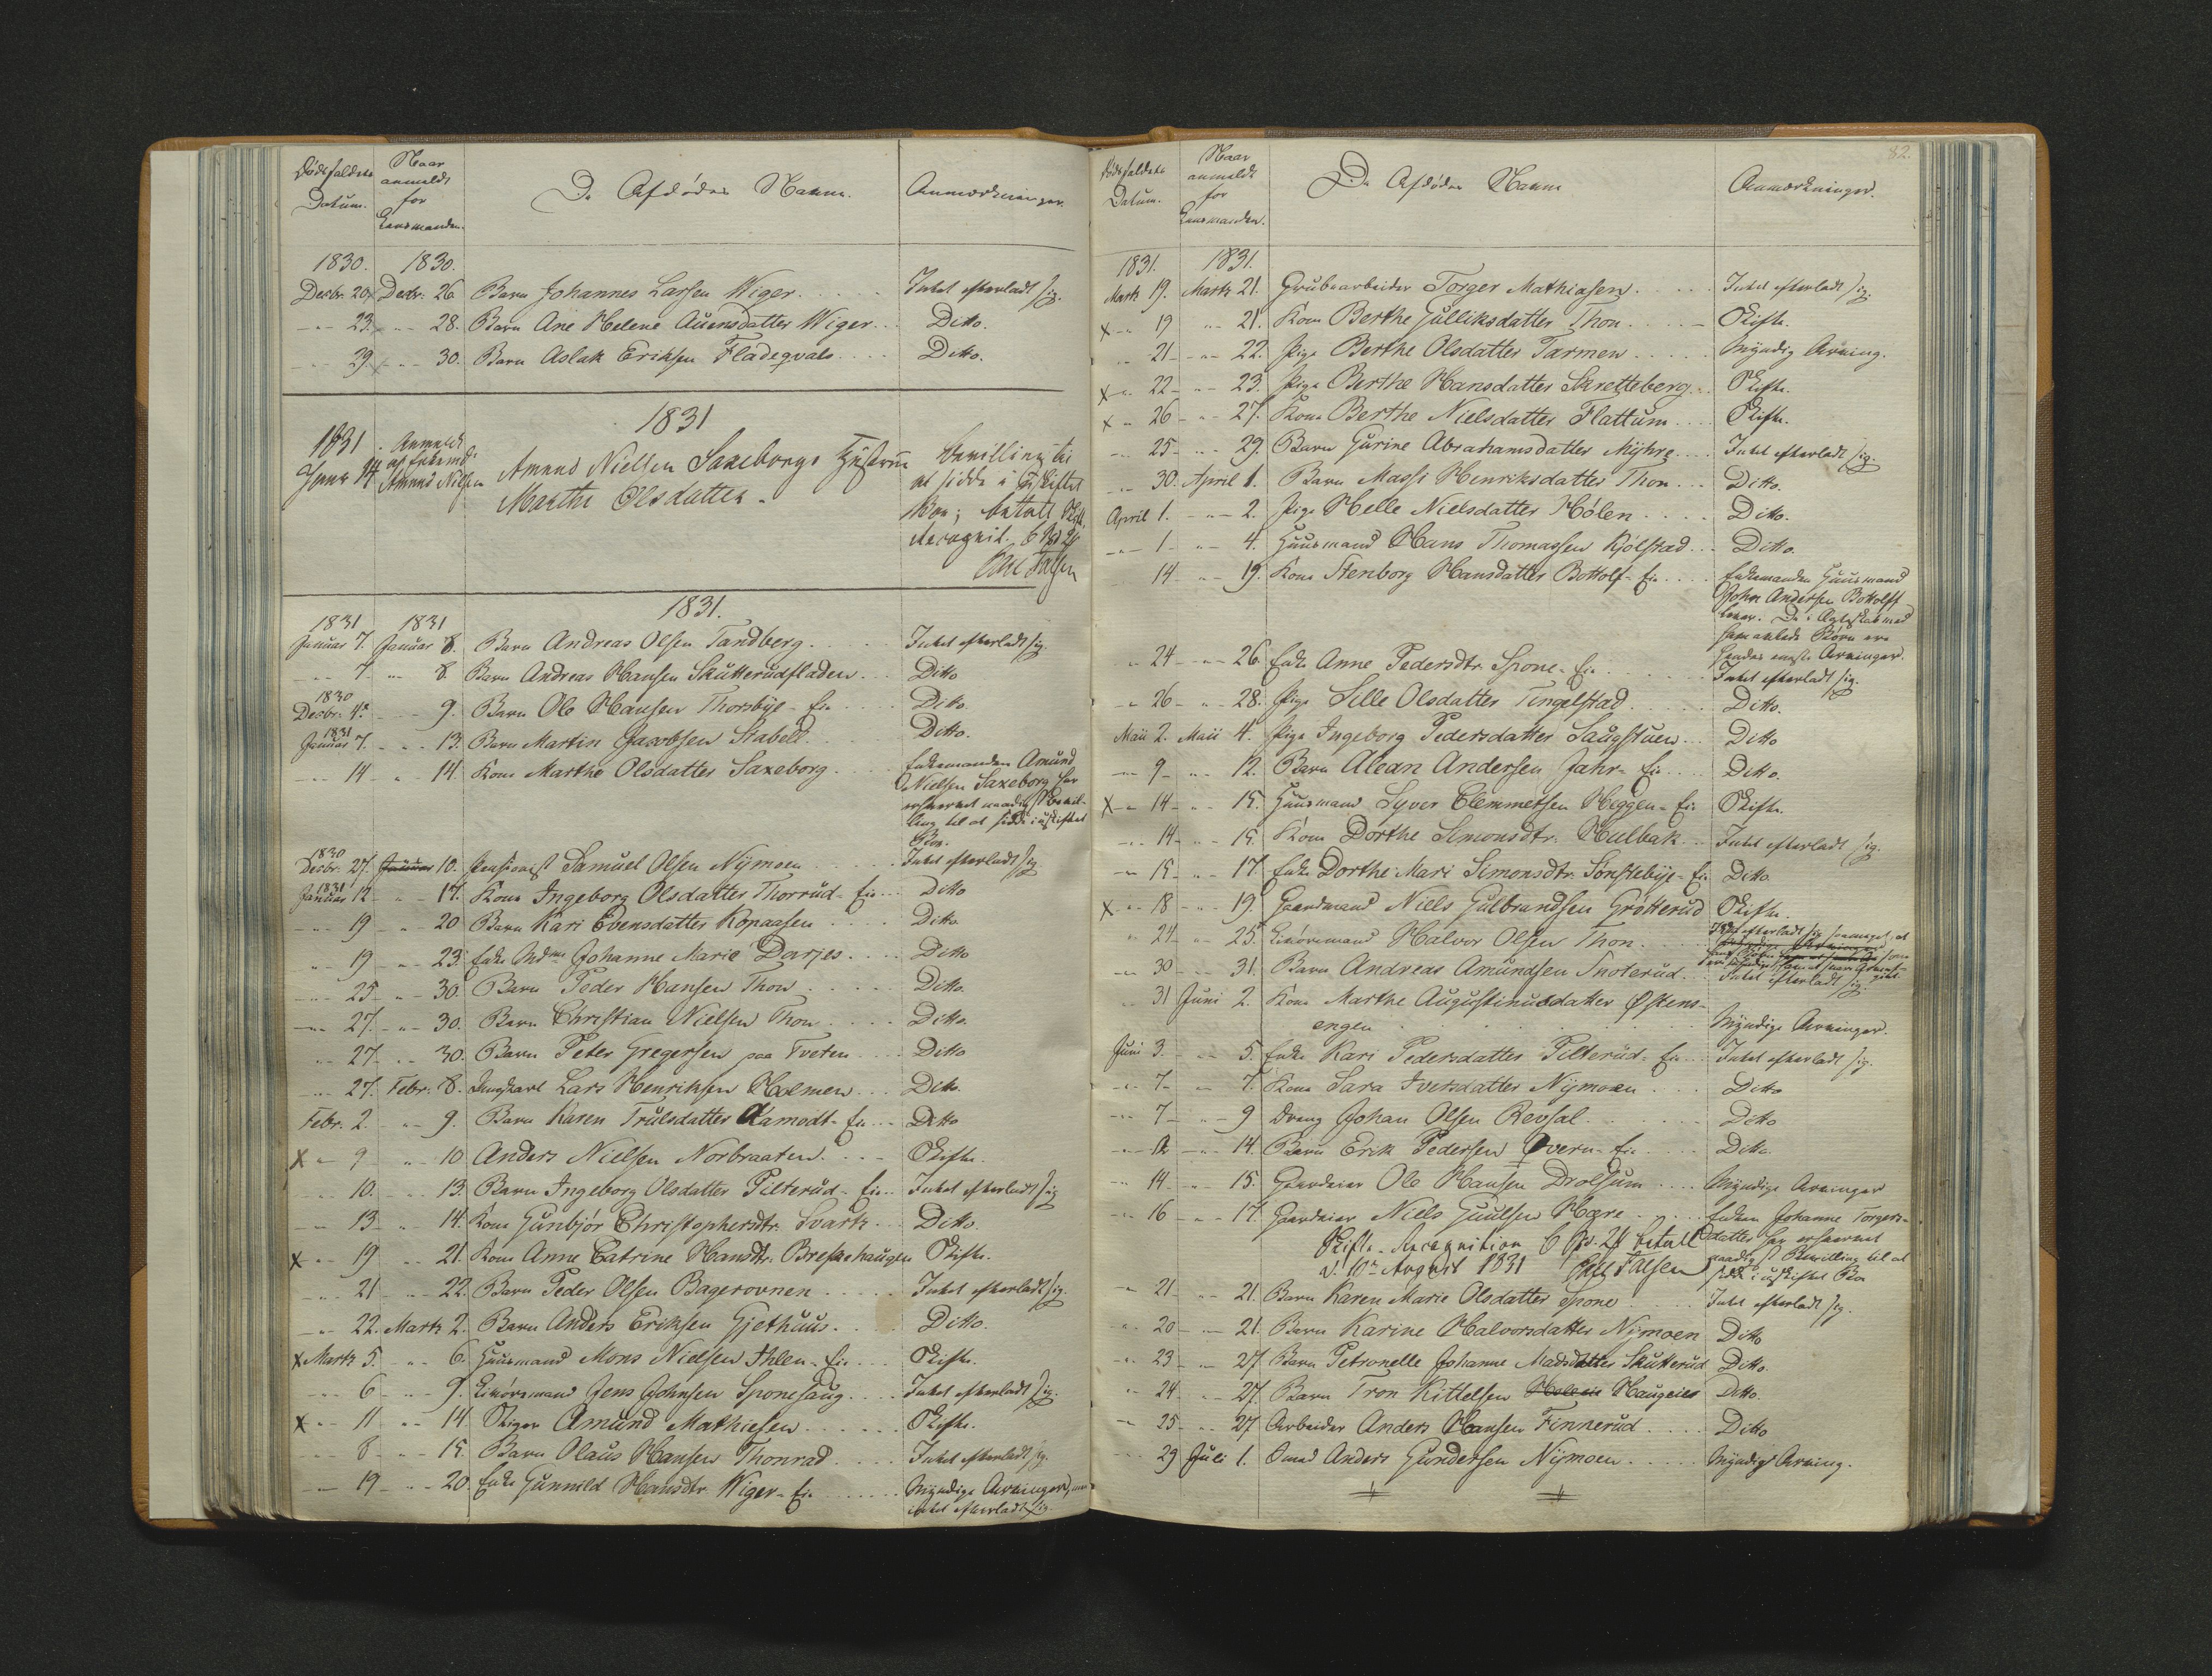 Dødsfaldets Datum. Naar anmeldt for Lensmanden. De Afdødes Navne. Anmærkninger.
1830. 1830.
Decbr. 20. Decbr. 26. Barn Johannes Larsen Wiger. Intet efterladt sig.
" 23. " 28. Barn Ane Helene Auensdatter Wiger. Ditto.
" 29. " 30. Barn Aslak Eriksen Fladeqvals. Ditto.
1831
1831 Janr 14 Anmeldt af Enkemd. Amund Nilsen Amund Nielsen Saxeborgs Hustrue Bevilling til
Marthe Olsdatter. at sidde i uskiftet
Boe; betalt
Recognit. 6 Spd 24
Falsen
1831.
1831 1831
Januar 7. Januar 8. Barn Andreas Olsen Tandberg. Intet efterladt sig.
" 7. " 8. Barn Andreas Hansen Skutterudfladen. Ditto
1830
Decbr. 4. " 9. Barn Ole Hansen Thorsbye-Eie Ditto.
1831
Januar 7. " 13. Barn Martin Jacobsen Stabell. Ditto.
" 14 " 14. Kone Marthe Olsdatter Saxeborg. Enkemanden Amund
Nielsen Saxeborg har
erhvervet naadigst Bevil-
ling til at sidde i uskiftet
Boe.
1830
Decbr. 27. Januar 10. Pensionist Samuel Olsen Nymoen Intet efterladt sig
1831
Januar 12 " 17. Kone Ingeborg Olsdatter Thorrud-Eie Ditto
" 19 " 20 Barn Kari Evensdatter Kopaasen Ditto.
" 19 " 23. Enke Mdme Johanne Marie Darjes. Ditto
" 25 " 30. Barn Peder Hansen Thon Ditto.
" 27. " 30. Barn Christian Nielsen Thon Ditto.
" 27 " 30. Barn Peter Gregersen paa Tveten Ditto
" 27. Febr. 8. Ungkarl Lars Henriksen Holmen Ditto.
Febr. 2. " 9. Barn Karen Trulsdatter Aamodt-Eie Ditto
X " 9 " 10 Anders Nielsen Norbraaten. Skifte.
" 10. " 13. Barn Ingeborg Olsdatter Pilterud-Eie Intet efterladt sig
" 13 " 14. Kone Gunbjør Christophersdtr. Svartz Ditto.
X " 19 " 21. Kone Anne Catrine Hansdtr. Breskehaugen Skifte.
" 21 " 22. Barn Peder Olsen Bagerovnen Intet efterladt sig.
" 22. Marts 2. Barn Anders Eriksen Gjethuus. Ditto.
X Marts 5. " 6. Huusmand Mons Nielsen Ihlen-Eie Skifte.
" 6 " 9. Leiørsmand Jens Johnsen Sponesaug. Intet efterladt sig.
X " 11 " 14 Stiger Amund Mathiesen Skifte.
" 8 " 15. Barn Olaus Hansen Thonrad. Intet efterladt sig.
" 19 " 20. Enke Gunnild Hansdtr. Wiger-Eie Myndige Arvinger, men
intet efterladt sig.
82.
Dødsfaldets Datum. Naar anmeldt for Lensmanden. De Afdødes Navne Anmærkninger.
1831. 1831.
Marts 19. Marts 21. Grubearbeider Torger Mathiasen. Intet efterladt sig.
X " 19 " 21. Kone Berthe Gulliksdatter Thon. Skifte.
" 21 " 22. Pige Berthe Olsdatter Tarmen Myndig Arving.
X " 22 " 23. Pige Berthe Hansdatter Skretteberg. Skifte.
X " 26 " 27. Kone Berthe Nielsdatter Flattum. Skifte.
" 25 " 29. Barn Gurine Abrahamsdatter Myhre. Intet efterladt sig.
" 30. April 1. Barn Massi Henriksdatter Thon. Ditto.
April 1. " 2. Pige Helle Nielsdatter Hølen. Ditto.
" 1 " 4. Huusmand Hans Thomassen Kjølstad. Ditto.
14 " 19. Kone Stenborg Hansdatter Bottolf-Eie Enkemanden Huusmand
John Andersen Bottolfs
lever. De i Ægteskab med
ham avlede Børn ere
hendes eneste Arvinger.
" 24 " 26. Enke Anne Pedersdtr. Spone-Eie Intet efterladt sig.
" 26 " 28. Pige Sille Olsdatter Tingelstad. Ditto.
Maii 2. Maii 4. Pige Ingeborg Pedersdatter Saugstuen. Ditto
" 9 " 12. Barn Alean Andersen Fahr-Eie Ditto.
X " 14 " 15. Huusmand Syver Clemmetsen Heggen-Eie Skifte.
" 14 " 15. Kone Dorthe Simonsdtr. Hulbak. Intet efterladt sig.
" 15 " 17. Enke Dorthe Mari Simonsdtr. Sønstebye-Eie Ditto.
X " 18 " 19. Gaardmand Niels Gulbrandsen Grøtterud Skifte.
" 24 " 25. Leiøresmand Halvor Olsen Thon. efterladt sig saameget, at
" 30 " 31. Barn Andreas Amundsen Snoterud. Intet efterladt sig.
" 31 Juni 2. Kone Marthe Augustinusdatter Østens-
engen Myndige Arvinger.
Juni 3. " 5. Enke Kari Pedersdatter Pilterud-Eie Intet efterladt sig.
" 7 " 7. Kone Sara Iversdatter Nymoen Ditto
" 7 " 9 Dreng Johan Olsen Revsal. Ditto
" 12 " 14. Barn Erik Pedersen Øvern-Eie Ditto.
" 14 " 15. Gaardeier Ole Hansen Drolsum Myndige Arvinger
" 16 " 17. Gaardeier Niels Guulsen Hære Enken Johanne Torgers-
Skifte-Recognition 6 Spd. 24 betalt datter har erhvervet
d. 10de August 1831 Falsen naadigst Bevilling til at
sidde i uskiftet Boe
" 21 " 21. Barn Karen Marie Olsdatter Spone Intet efterladt sig.
" 20 " 21. Barn Karine Halvorsdatter Nymoen Ditto
" 23 " 27. Barn Petronelle Johanne Madsdatter Skutterud Ditto.
" 24 " 27. Barn Tron Kittelsen Haugeies Ditto.
" 25 " 27 Arbeider Anders Hansen Finnerud. Ditto
" 29 Juli 1. Smed Anders Gundersen Nymoen. Myndig Arving.